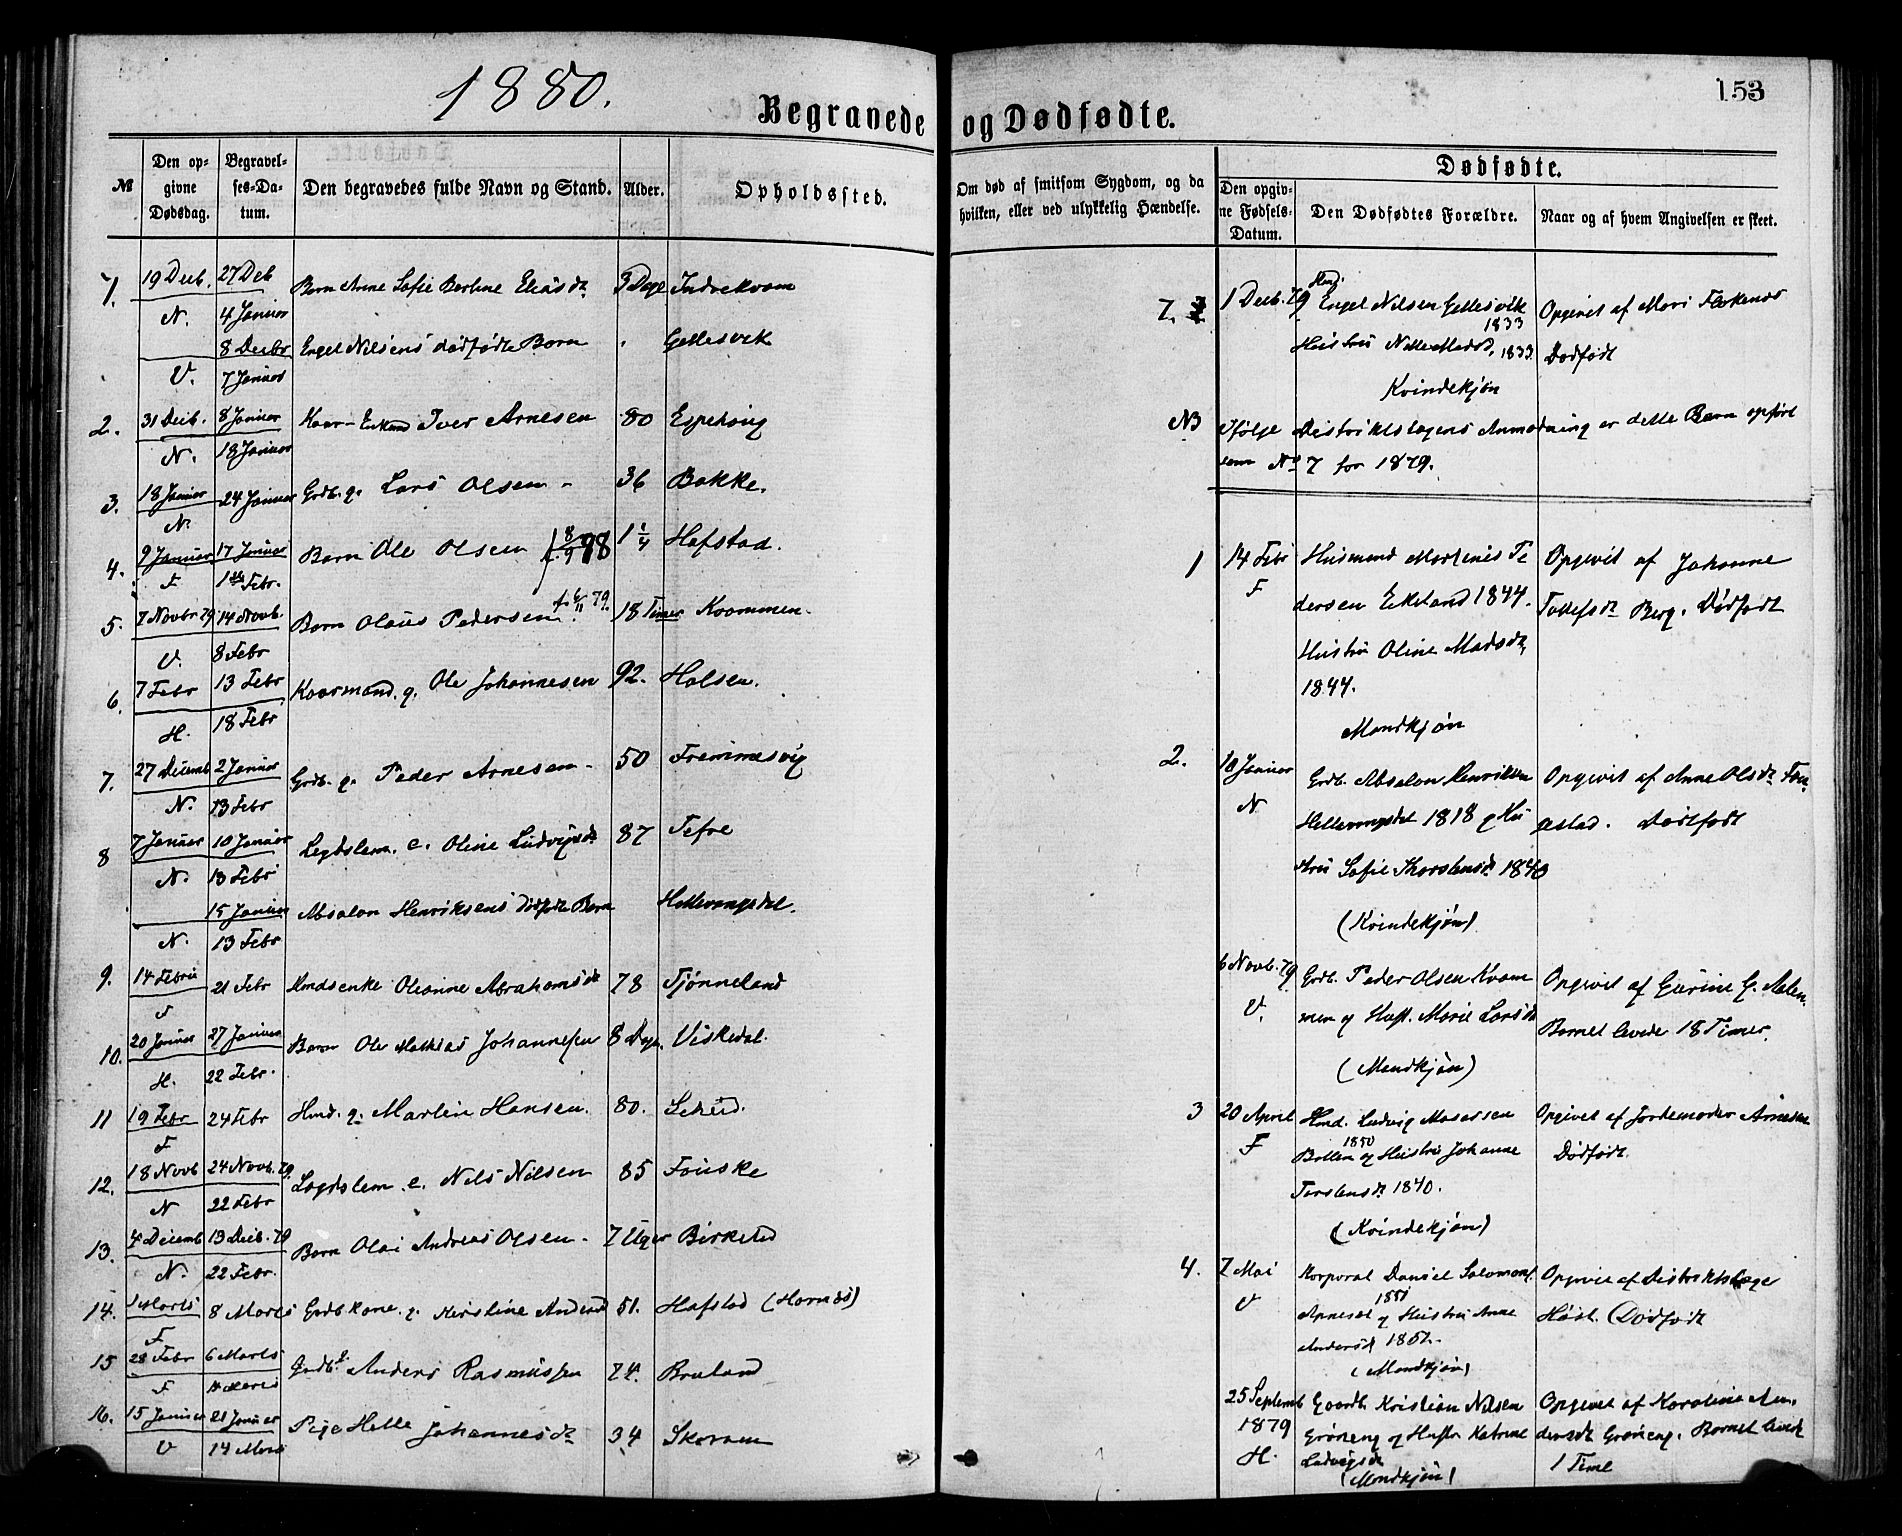 1880.
153
Begravede og Dødfødte.
№
Den opgivne Dødsdag.
Begravelses-Datum.
Den begravedes fulde Navn og Stand.
Alder.
Opholdssted.
Om død af smitsom Sygdom, og da hvilken, eller ved ulykkelig Hændelse.
Dødfødte.
Den opgivne Fødsels-Datum.
Den Dødfødtes Forældre.
Naar og af hvem Angivelsen er skeet.
1. 19 Decb. 27 Deb Barn Anne Sofie Berline Eliasdt 3 Dage Indrekvam
N. 4 Januar
8 Decbr Engel Nilsens dødfødte Barn Gellesvik
V. 7 Januar
2. 31 Decb. 8 Januar Kaar- Enkmd Iver Arnesen 80 Espehøug
N. 18 Januar
3. 18 Januar 24 Januar Grdb. g. Lars Olsen 36 Bakke.
N.
4. 9 Januar 17 Januar Barn Ole Olsen f. 8/9 78 1 1/4 Hafstad.
F 1ste Febr.
5. 7 Novbr 79 14 Novb. Barn Olaus Pedersen f. 6/11 79. 18 Timer Kvammen.
V. 8 Febr
6. 7 Febr 13 Febr Kaarmand. g. Ole Johannesen 92. Holsen.
H. 18 Febr
7. 27 Decemb 2 Januar Grdb. g. Peder Arnesen 50 Fremmesvig
N. 13 Febr
8 7 Januar 10 Januar Legdslem. e. Oline Ludvigsdt 87 Tefre
N. 13 Febr
15 Januar Absalon Henriksens dødfødte Barn Hellevangsdal.
N. 13 Febr
9. 14 Febru 21 Febr Hmdsenke Oleanne Abrahamsdt 78 Tjønneland
F
10. 20 Januar 27 Januar Barn Ole Mathias Johannessen 8 Dage. Viskedal.
H. 22 Febr.
11 19 Febr 24 Febr Hmd. g. Martin Hansen. 80.
F
12. 18 Novb 24 Novb. 79. Lægdslem. e. Nils Nilsen 85 Fauske
N 22 Febr
13. 4 Decemb 13 Decb. 79 Barn Olai Andreas Olsen 7 Uger Birketed
N. 22 Febr.
14. 1 Marts 8 Marts Grdb kone. g. Kirstine Andersd 51. Hafstad (Hornes)
F
15 28 Febr 6 Marts Gaardb. g. Anders Rasmussen 74. Bruland
F
16. 15 Januar 21 Januar Pige Helle Johannesdt 34 Skaram
V 14 Mars
7. 1 Decb. 79 Hmd. Engel Nilsen Gellesvik 1833 Opgivet af Mari Flokenes
Hustru Nille Madsd. 1833 Dødfødt
Kvindekjøn
NB Ifølge Distriktslægens Anmodning er dette Barn opført
som No 7 for 1879.
1 14 Febr Husmand Martinus Pe Opgivet af Johanne
F dersen Eikeland 1844. Tollefsdt Berg. Dødfødt
Hustru Oline Madsdt,
1844.
Mandkjøn
2. 10 Januar Grdb. Absalon Henriksen Opgivet af Anne Olsdt Fau
N Hellevangsdal 1818 g Hu gstad. Dødfødt
stru Sofie Thorstensdt 1840
(Kvindekjøn)
6 Novb. 79 Grdb. Peder Olsen Kvam Opgivet af Gurine G. Aalen.
V. men g Hust. Marie Larsdt Barnet levede 18 Timer.
(Mandkjøn)
3 20 April Hmd. Ludvig Mosessen Opgivet af Jordemoder Arnesen
F 1850 og Hustru Johanne Dødfødt.
Torstensdt 1840.
(Kvindekjøn)
4. 7 Mai Korporal Daniel Salomons. Opgivet af Distriktslæge
V 1851 og Hustru Anne Høst. (Dødfødt
Andersd 1852.
(Mandkjøn)
25 Septemb Gaardb. Kristian Nilsen Opgivet af Karoline An
1879 Grøneng og Hustr Katrine dersdt Grøneng. Barnet levede
H. Ludvigsdt 1 Time
(Mandkjøn)